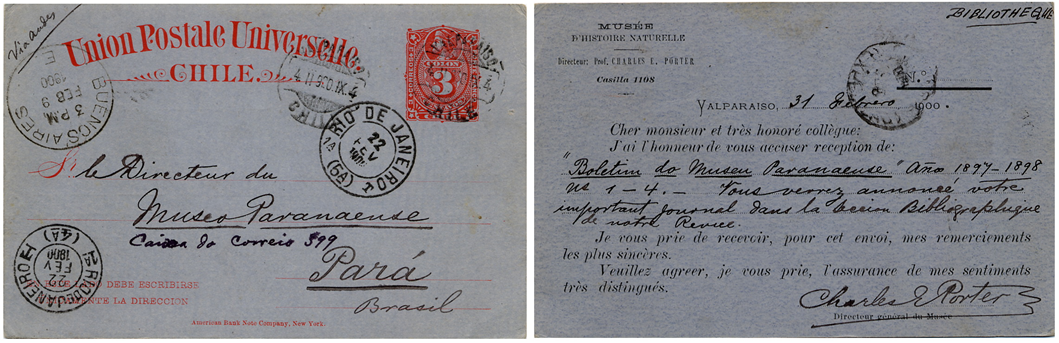 Via Andes
Union Postale Universelle
CHILE.
COLON
3
VALPARAISO
4. II 900. IX. 4
CHILE
BUENOS AIRES
3 PM
FEB 9
1900
RIO DE JANEIRO
22
FEV
(6A)
Sr. le Directeur du
Museo Paranaense
Caixa do correio 399
Pará
Brasil
1A RIO DE JANEIRO
22
FEV
1900
(4A)
ESTE LADO DEBE ESCRIBIRSE
UNICAMENTE LA DIRECCION
American Bank Note Company, New York.
BIBLIOTHEQUE
MUSÉE
D'HISTOIRE NATURELLE
Directeur: Prof. CHARLES E. PORTER
Casilla 1108
N.o
VALPARAISO, 31 Febrero 1900.
Cher monsieur et très honoré collègue:
J'ai l'honneur de vous accuser reception de:
"Boletim do Museu Paranaense" Año 1897-1898
Ns 1-4. — Vous verrez annoncé votre
important journal dans la Seccion Bibliographique
de notre Revue.
Je vous prie de recevoir, pour cet envoi, mes remerciements
les plus sincères.
Veuillez agreer, je vous prie, l'assurance de mes sentiments
très distingués.
Charles E Porter
Directeur général du Musée